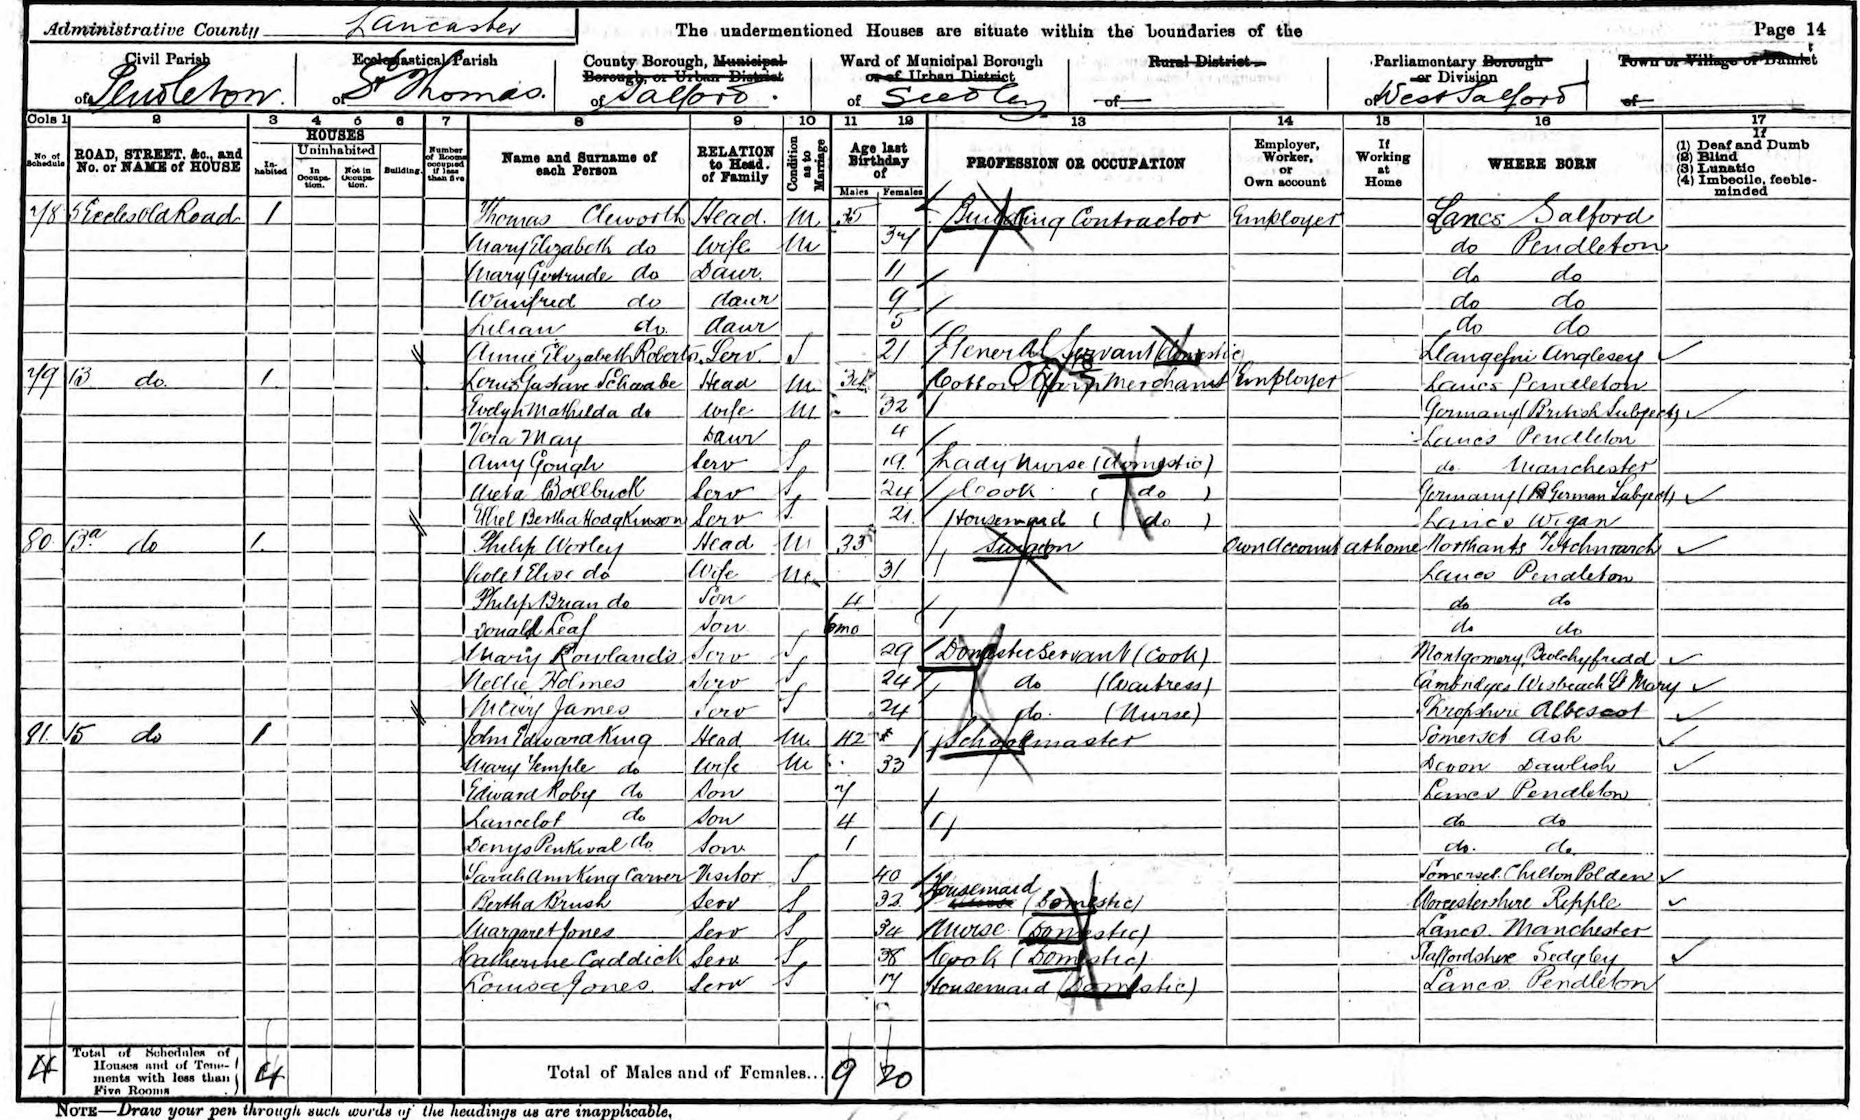 Administrative County Lancaster The undermentioned Houses are situate within the boundaries of the Page 14
Civil Parish Ecclesiastical Parish County Borough, Municipal Borough, or Urban District Ward of Municipal Borough or of Urban District Rural District Parliamentary Borough or Division Town or Village or Hamlet
of Pendleton. of St Thomas. of Salford. of Seedley of of West Salford of
Cols 1 2 3 4 5 6 7 8 9 10 11 12 13 14 15 16 17
No. of Schedule ROAD, STREET, &c., and No. or NAME of HOUSE HOUSES Inhabited Uninhabited In Occupation. Not in Occupation. Building. Number of Rooms occupied if less than five Name and Surname of each Person RELATION to Head of Family Condition as to Marriage Age last Birthday of Males Females PROFESSION OR OCCUPATION Employer, Worker, or Own account If Working at Home WHERE BORN If (1) Deaf and Dumb (2) Blind (3) Lunatic (4) Imbecile, feeble-minded
78 Eccles Old Road 1 Thomas Cleworth Head. M 35 Building Contractor Employer Lancs Salford
Mary Elizabeth do Wife M 34 do Pendleton
Mary Gertrude do Daur. 11 do do
Winifred do daur 9 do do
Lilian do. daur 5 do do
Annie Elizabeth Roberts. Serv. S 21 General Servant (domestic) Llangefni Anglesey
79 13 do. 1. Louis Gustave Schwabe Head M. 34 Cotton Yarn Merchant Employer Lancs Pendleton
Evelyn Mathilda do Wife M 32 Germany (British Subject)
Vera May Daur 4 Lancs Pendleton
Amy Gough Serv S 19 Lady Nurse (domestic) do. Manchester
Meta Bollbuck Serv S 24 Cook (do) Germany (German Subject)
Ethel Bertha Hodgkinson Serv S 21 Housemaid (do) Lancs Wigan
80 13a do 1. Philip Worley Head M 33 Surgeon Own Account at home Northants Titchmarch
Violet Elise do Wife M. 31 Lancs Pendleton
Philip Brian do Son 4 do do
Donald Leaf Son 6mo do do
Mary Rowlands Serv S 29 Domestic Servant (Cook) Montgomery,
Nellie Holmes Serv S 24 do (Waitress) Cambridges Wisbeach St Mary
Mary James Serv S 24 do. (Nurse) Shropshire
81. 15 do 1 John Edward King Head M. 42 Schoolmaster Somerset Ash
Mary Temple do Wife M 33 Devon Dawlish
Edward Roby do Son 7 Lancs Pendleton
Lancelot do Son 4 do do
Denys Penkival do. Son 1 do. do.
Sarah Ann King Carver Visitor S 40 Somerset. Chilton Polden
Bertha Brush Serv S 32 Housemaid (Domestic) Worcestershire Ripple
Margaret Jones Serv S 34 Nurse (Domestic) Lancs. Manchester
Catherine Caddick Serv S 38 Cook (Domestic) Staffordshire Sedgley
Louisa Jones Serv S 17 Housemaid (Domestic) Lancs. Pendleton
4 Total of Schedules of Houses and of Tenements with less than Five Rooms 4 Total of Males and of Females... 9 20
NOTE—Draw your pen through such words of the headings as are inapplicable.